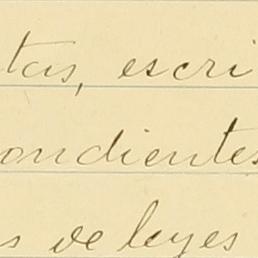 tas, escri
ondientes
s de leyes